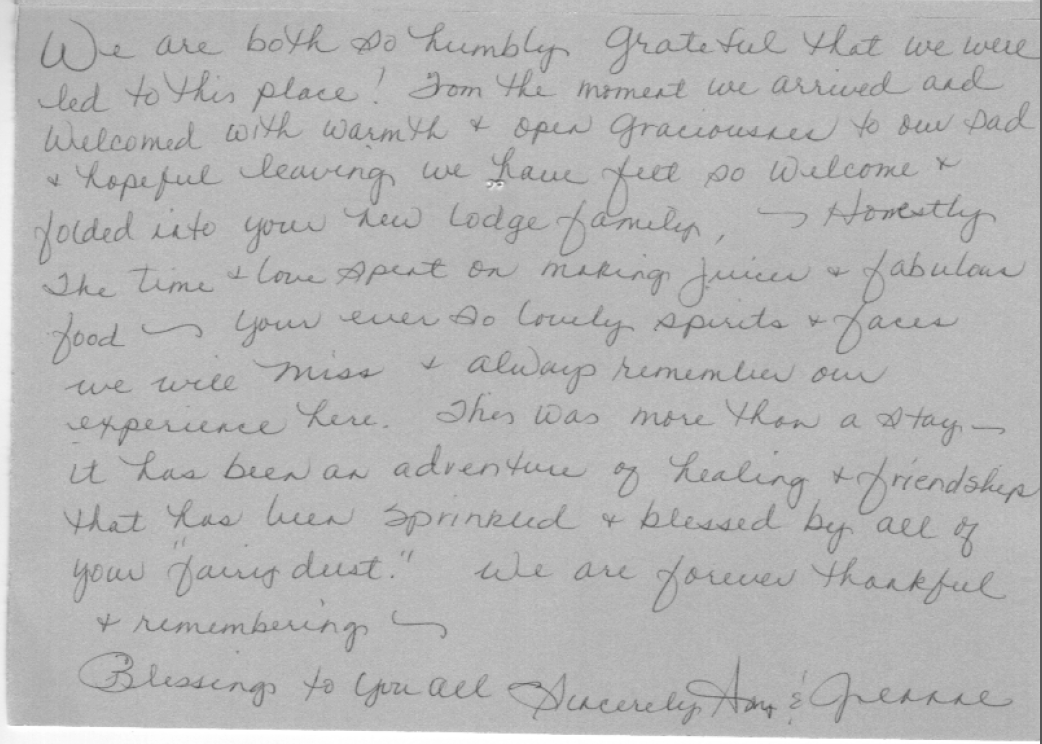 We are both so humbly grateful that we were
led to this place! From the moment we arrived and
Welcomed with warmth & open graciousness to our sad
& hopeful leaving we have felt so welcome &
folded into your new lodge family, ~ Honestly
The time & love spent on making juices & fabulous
food ~ your ever so lovely spirits & faces
we will miss & always remember our
experience here. This was more than a stay ~
it has been an adventure of healing & friendship
that has been sprinkled & blessed by all of
your "fairy dust." We are forever thankful
& remembering ~
Blessings to you all Sincerely, &